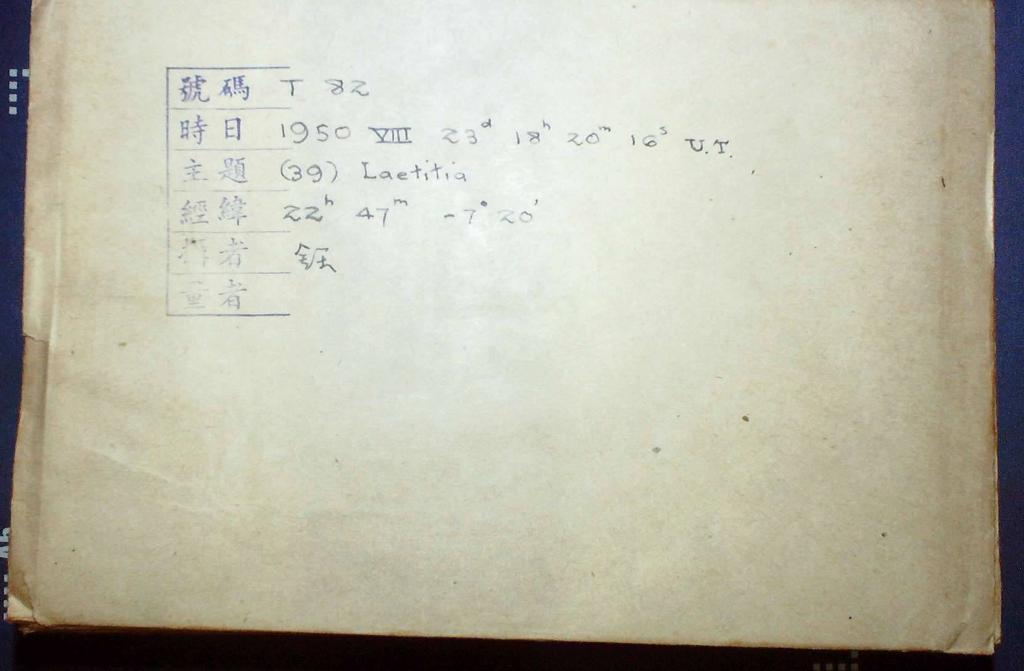 號碼 T 82
時日 1950 VIII 23ᵈ 18ʰ 20ᵐ 16ˢ U.T.
主題 (39) Laetitia
經緯 22ʰ 47ᵐ -7° 20'
者
者